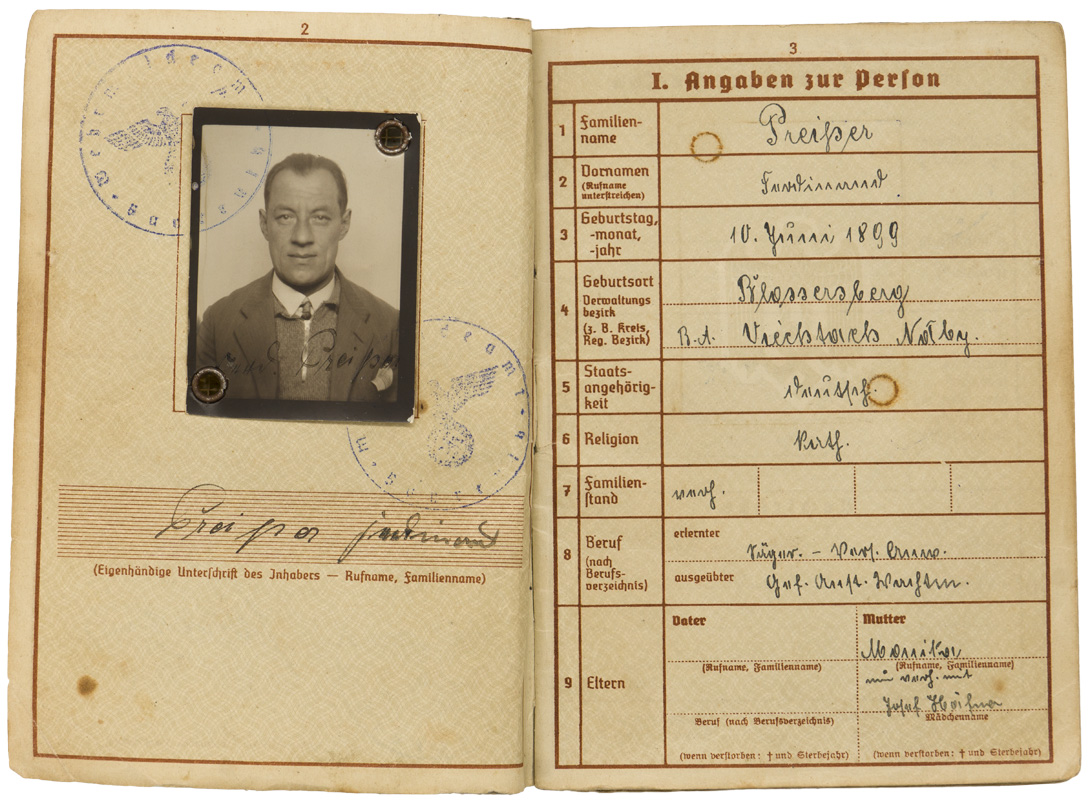 2
Preißer Ferdinand
(Eigenhändige Unterschrift des Inhabers — Rufname, Familienname)
3
I. Angaben zur Person
1
Familien-
name
Preißer
2
Vornamen
(Rufname
unterstreichen)
Ferdinand
3
Geburtstag,
-monat,
-jahr
10. Juni 1899
4
Geburtsort
Verwaltungs
bezirk
(z. B. Kreis,
Reg. Bezirk)
Blossersberg
B.A. Viechtach Ndby.
5
Staats-
angehörig-
keit
deutsch.
6
Religion
kath.
7
Familien-
stand
verh.
8
Beruf
(nach
Berufs-
verzeichnis)
erlernter
Säger. –
ausgeübter
Gef. Wachtm.
9
Eltern
Vater
(Rufname, Familienname)
Beruf (nach Berufsverzeichnis)
(wenn verstorben: † und Sterbejahr)
Mutter
Monika
(Rufname, Familienname)
nun verh. mit
Josef
Mädchenname
(wenn verstorben: † und Sterbejahr)